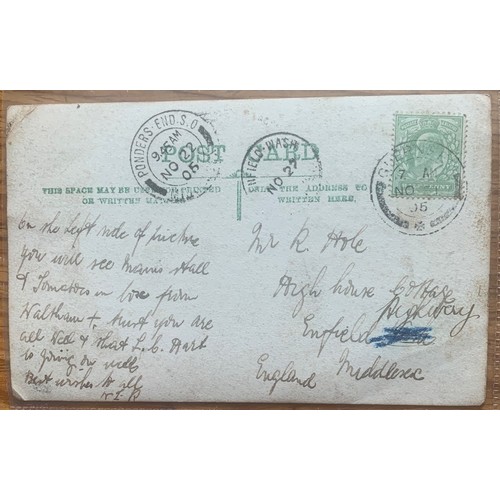 PONDERS-END.S.O
9 AM
NO 22
05
ENFIELD-WASH
NO 27
7 A
NO
05
POST CARD
THIS SPACE MAY BE PRINTED
OR WRITTEN
ONLY THE ADDRESS TO
WRITTEN HERE.
On the left side of picture
you will see Manns Hall
& Tomatoes in box from
Waltham +, trust you are
all Well & that L.C. Dart
is going on well
Best wishes to all
Mr R. Hole
High house Cottage
Highway
Enfield
England Middlesex